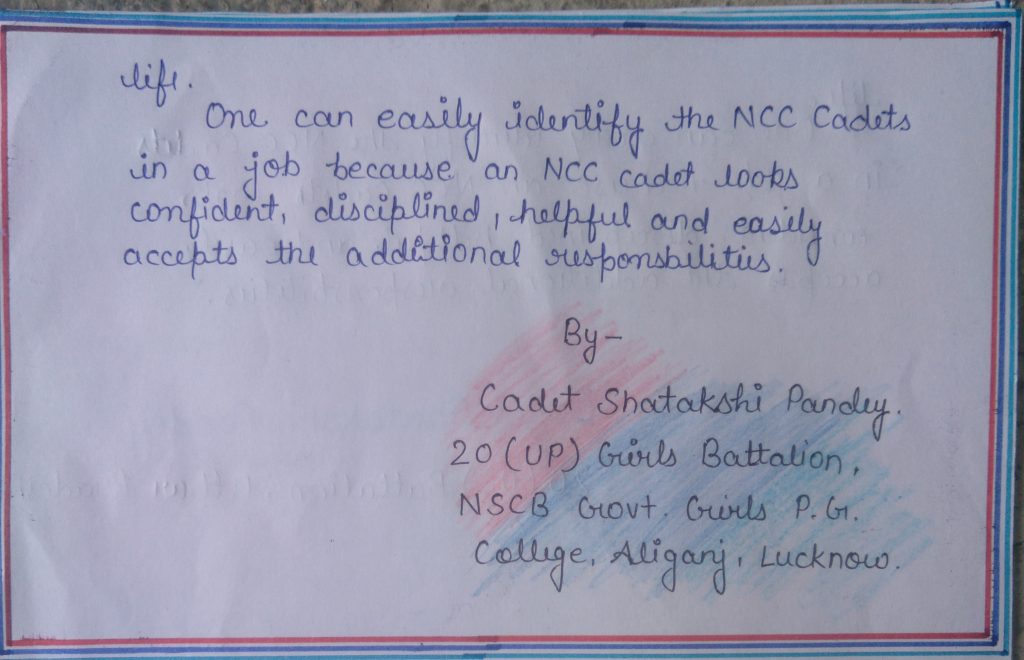 life.
One can easily identify the NCC Cadets
in a job because an NCC cadet looks
confident, disciplined, helpful and easily
accepts the additional responsbilities.
By-
Cadet Shatakshi Pandey.
20 (UP) Girls Battalion,
NSCB Govt. Girls P.G.
College, Aliganj, Lucknow.